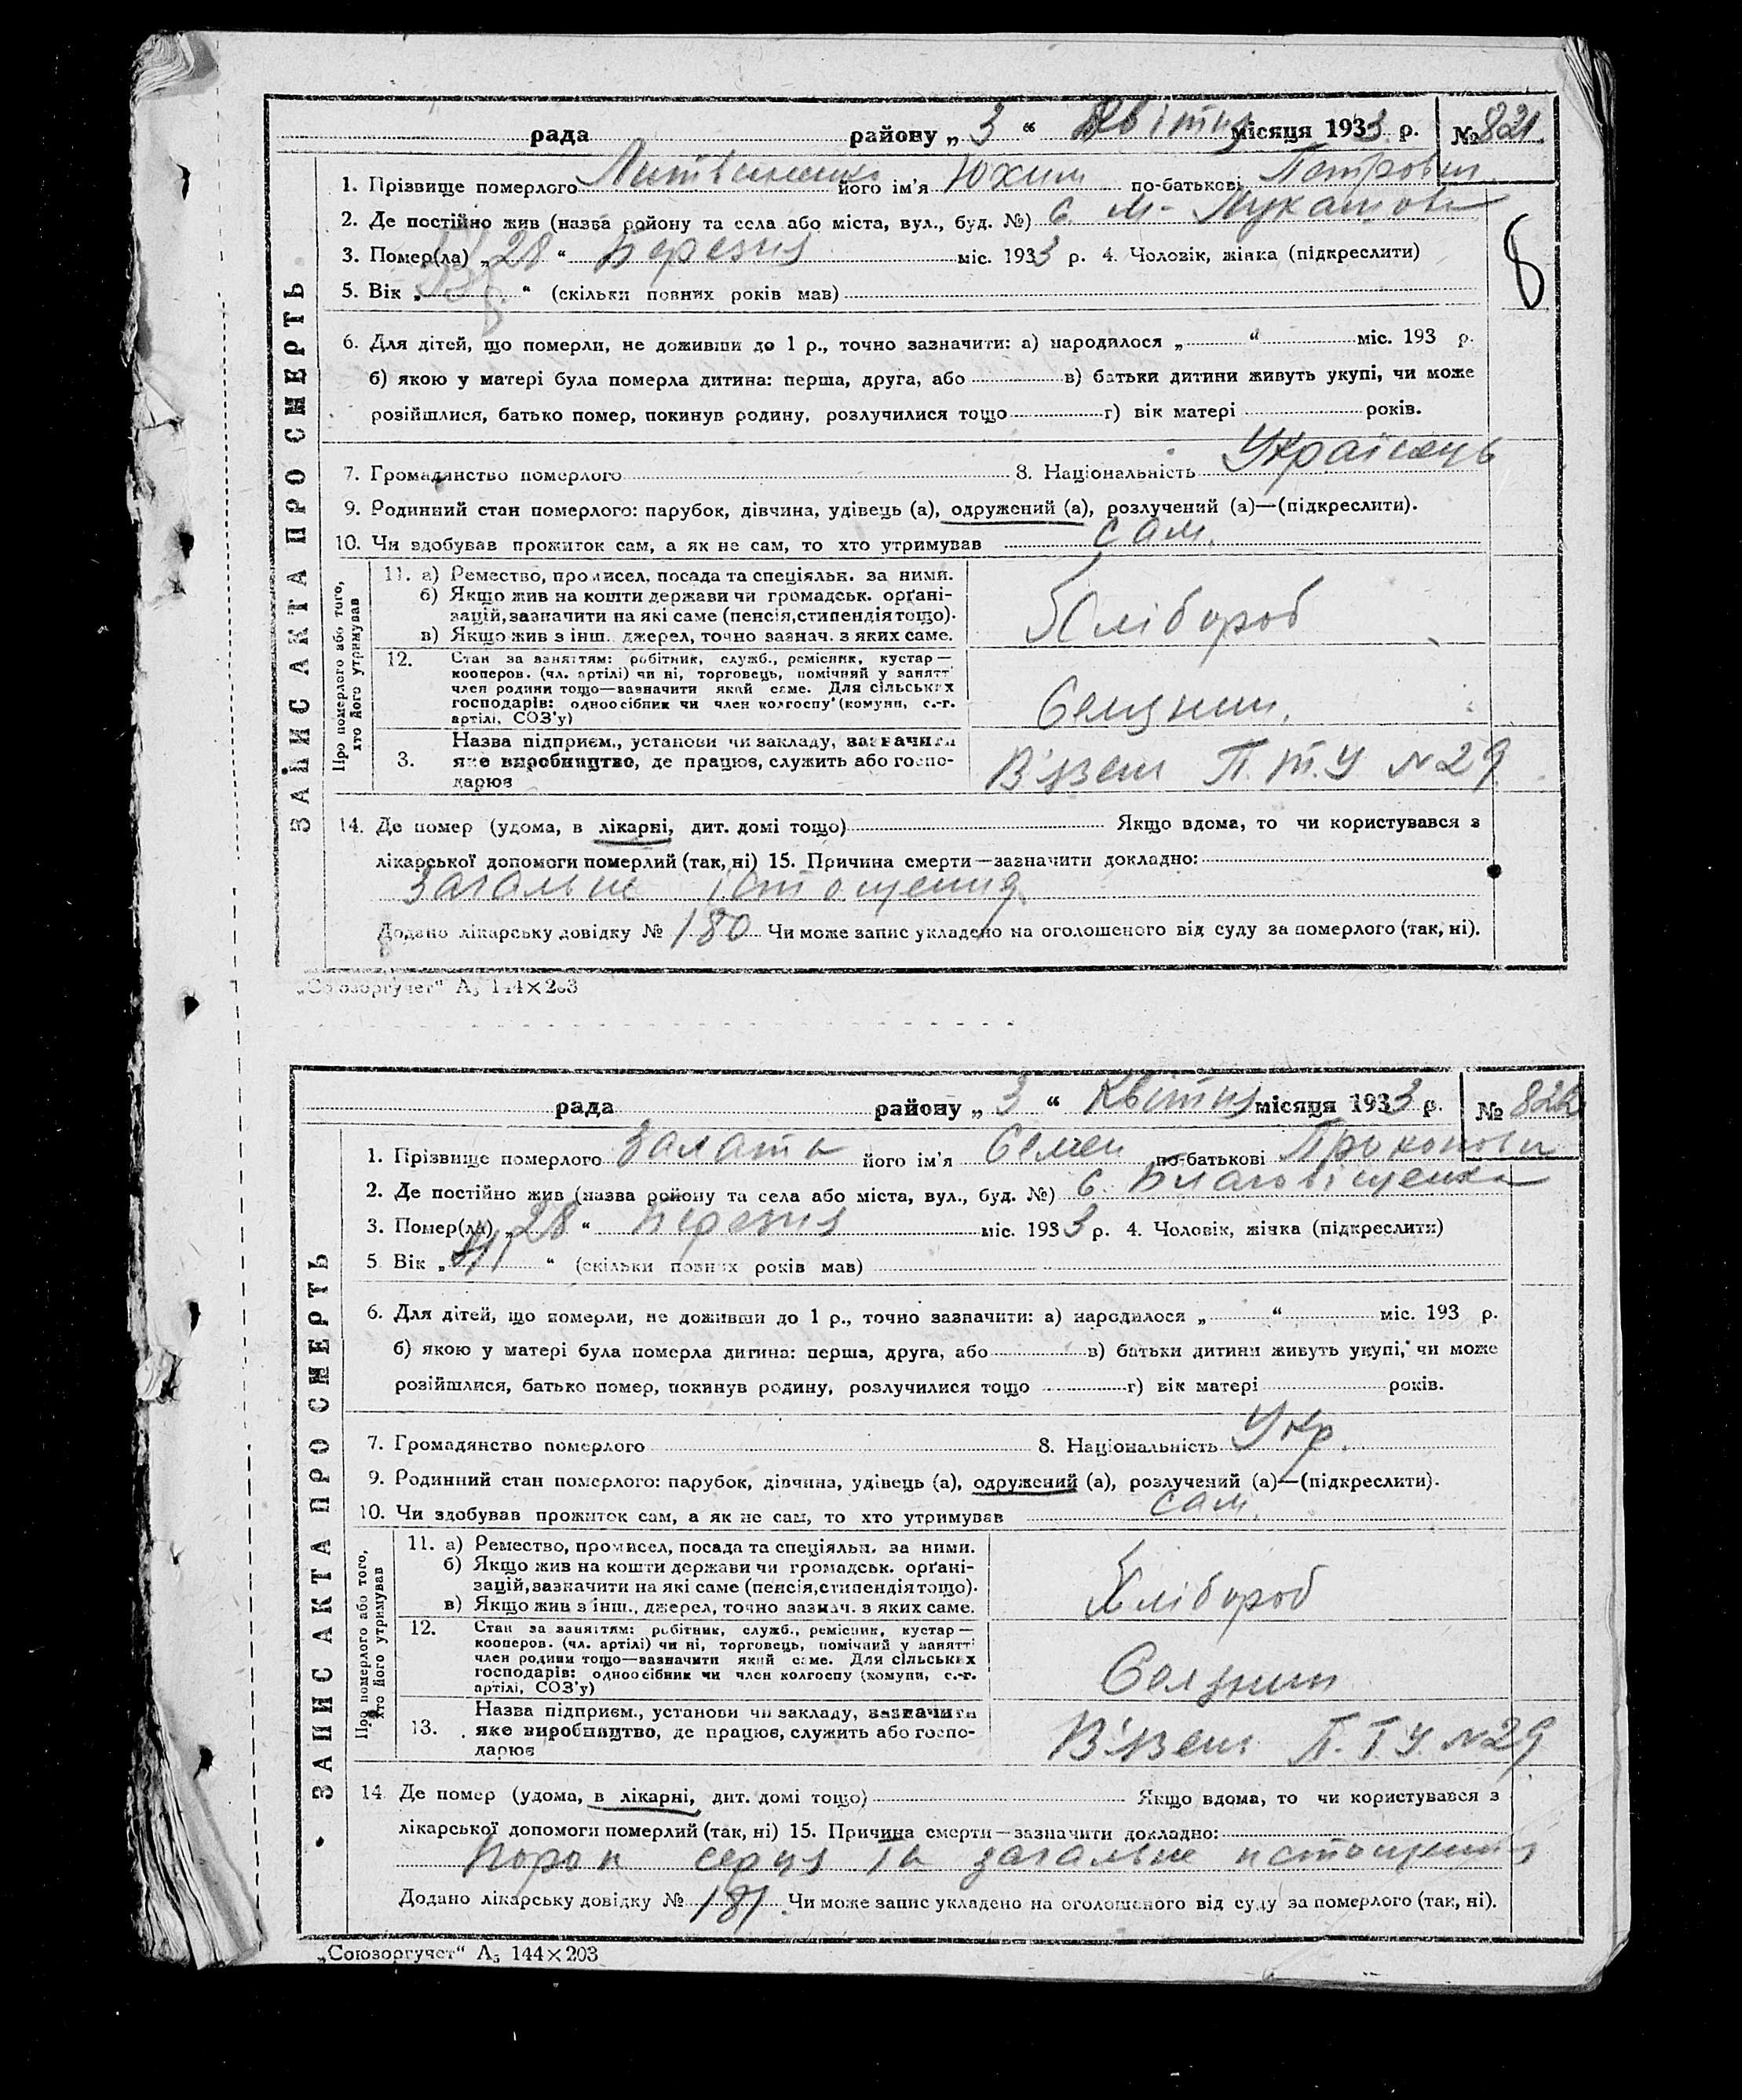 рада району „ 3 “ Квітня місяця 1933 р. № 821
1. Прізвище померлого Литвиненко його ім'я Юхим по-батькові Петрович
2. Де постійно жив (назва району та села або міста, вул., буд. №) С. М-
3. Помер(ла) „ 28 “ Березня міс. 1933 р. 4. Чоловік, жінка (підкреслити)
8
5. Вік „ “ (скільки повних років мав)
6. Для дітей, що померли, не доживши до 1 р., точно зазначити: а) народилося „ “ міс. 193 р.
б) якою у матері була померла дитина: перша, друга, або в) батьки дитини живуть укупі, чи може
розійшлися, батько помер, покинув родину, розлучилися тощо г) вік матері років.
7. Громадянство померлого 8. Національність Українець
9. Родинний стан померлого: парубок, дівчина, удівець (а), одружений (а), розлучений (а)—(підкреслити).
10. Чи здобував прожиток сам, а як не сам, то хто утримував сам.
ЗАПИС АКТА ПРО СМЕРТЬ
Про померлого або того, хто його утримував
11. а) Ремество, промисел, посада та спеціяльн. за ними.
б) Якщо жив на кошти держави чи громадськ. орґані-
зацій, зазначити на які саме (пенсія, стипендія тощо).
в) Якщо жив з інш. джерел, точно зазнач. з яких саме.
Хлібороб
12. Стан за заняттям: робітник, служб., ремісник, кустар—
кооперов. (чл. артілі) чи ні, торговець, помічний у занятт
член родини тощо—зазначити який саме. Для сільських
господарів: одноосібник чи член колгоспу (комуни, с.-г.
артілі, СОЗ'у)
Селянин.
3. Назва підприєм., установи чи закладу, зазначити
яке виробництво, де працює, служить або госпо-
дарює
В'язень П.Т.У №29
14. Де помер (удома, в лікарні, дит. домі тощо) Якщо вдома, то чи користувався з
лікарської допомоги померлий (так, ні) 15. Причина смерти—зазначити докладно:
Загальне істощення
Додано лікарську довідку № 180 Чи може запис укладено на оголошеного від суду за померлого (так, ні).
„Союзоргучет“ А5 144×203
рада району „ 3 “ Квітня місяця 1933 р. № 822
1. Прізвище померлого його ім'я Семен по-батькові Прокопович
2. Де постійно жив (назва району та села або міста, вул., буд. №) С. Благовіщенка
3. Помер(ла) „ 28 “ Березня міс. 1933 р. 4. Чоловік, жінка (підкреслити)
5 Вік „ “ (скільки повних років мав)
6. Для дітей, що померли, не доживши до 1 р., точно зазначити: а) народилося „ “ міс. 193 р.
б) якою у матері була померла дитина: перша, друга, або в) батьки дитини живуть укупі, чи може
розійшлися, батько помер, покинув родину, розлучилися тощо г) вік матері років.
7. Громадянство померлого 8. Національність Укр.
9. Родинний стан померлого: парубок, дівчина, удівець (а), одружений (а), розлучений (а)—(підкреслити).
10. Чи здобував прожиток сам, а як не сам, то хто утримував сам.
ЗАПИС АКТА ПРО СМЕРТЬ
Про померлого або того, хто його утримував
11. а) Ремество, промисел, посада та спеціяльн. за ними.
б) Якщо жив на кошти держави чи громадськ. орґані-
зацій, зазначити на які саме (пенсія, стипендія тощо).
в) Якщо жив з інш. джерел, точно зазнач. з яких саме.
Хлібороб
12. Стан за заняттям: робітник, служб., ремісник, кустар—
кооперов. (чл. артілі) чи ні, торговець, помічний у занятті
член родини тощо—зазначити який саме. Для сільських
господарів: одноосібник чи член колгоспу (комуни, с.-г.
артілі, СОЗ'у)
Селянин
13. Назва підприєм., установи чи закладу, зазначити
яке виробництво, де працює, служить або госпо-
дарює
В'язень П.Т.У. №29
14 Де помер (удома, в лікарні, дит. домі тощо) Якщо вдома, то чи користувався з
лікарської допомоги померлий (так, ні) 15. Причина смерти—зазначити докладно:
Порок серця та загальне истощення
Додано лікарську довідку № 181. Чи може запис укладено на оголошеного від суду за померлого (так, ні).
„Союзоргучет“ А5 144×203